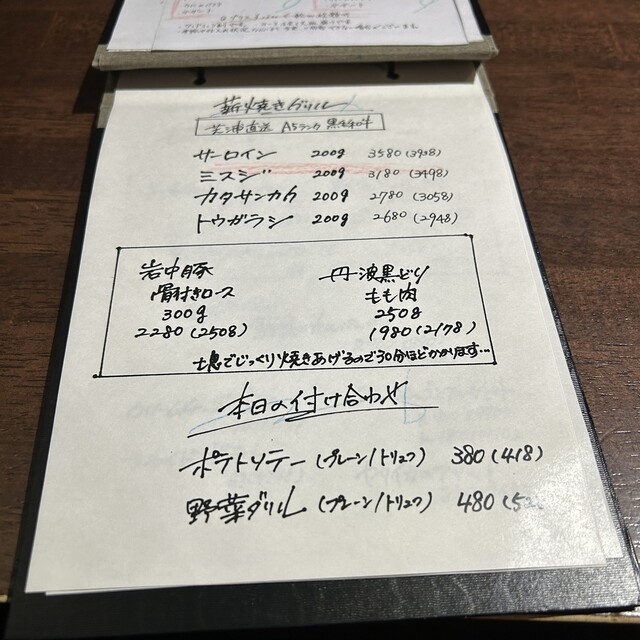 薪焼きグリル
直送 A5ランク 黒毛和牛
サーロイン 200g 3580 (3938)
ミスジ 200g 3180 (3498)
カタサンカク 200g 2780 (3058)
トウガラシ 200g 2680 (2948)
岩中豚
骨付きロース
300g
2280 (2508)
丹波黒どり
もも肉
250g
1980 (2178)
でじっくり焼きあげるので30分ほどかかります…
本日の付け合わせ
ポテトソテー (プレーン/トリュフ) 380 (418)
野菜グリル (プレーン/トリュフ) 480